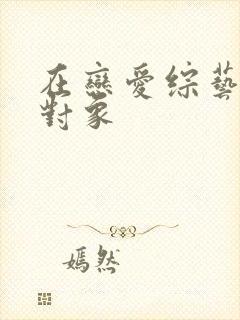 在戀愛綜藝
對象
嫣然